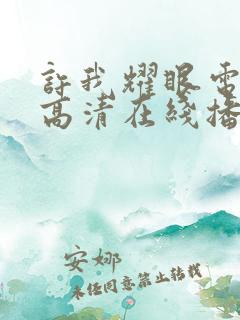 許我耀眼電
高清在綫播
安娜
未經同意禁止轉載